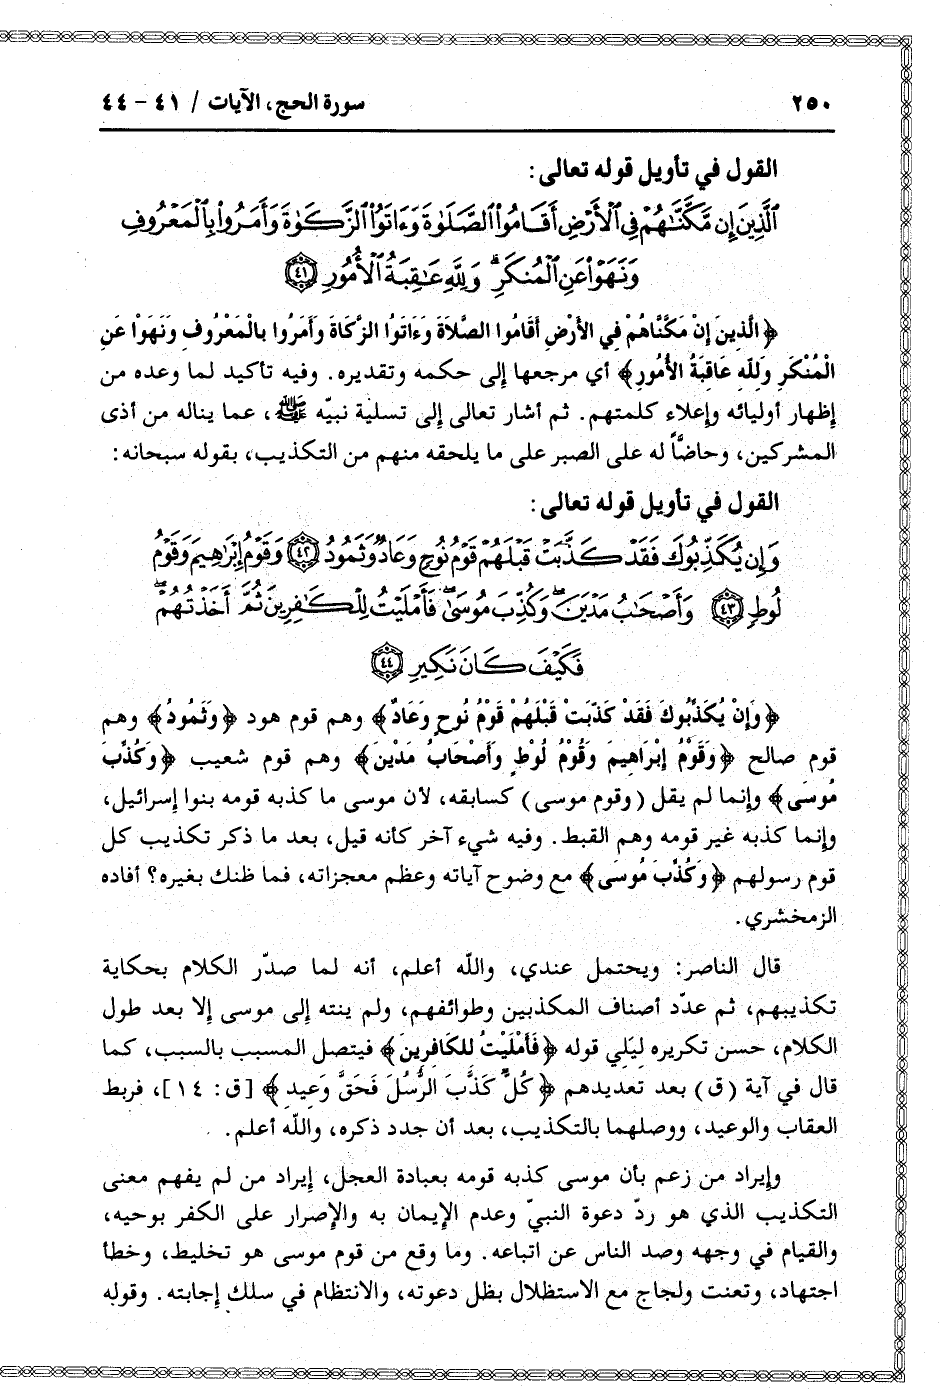 ٢٥٠ سورة الحج، الآيات / ٤١ - ٤٤
القول في تأويل قوله تعالى:
ٱلَّذِينَ إِن مَّكَّنَّٰهُمْ فِي ٱلْأَرْضِ أَقَامُوا۟ ٱلصَّلَوٰةَ وَءَاتَوُا۟ ٱلزَّكَوٰةَ وَأَمَرُوا۟ بِٱلْمَعْرُوفِ
وَنَهَوْا۟ عَنِ ٱلْمُنكَرِ ۗ وَلِلَّهِ عَٰقِبَةُ ٱلْأُمُورِ ﴿٤١﴾
﴿الَّذِينَ إِنْ مَكَّنَّاهُمْ فِي الأَرْضِ أَقَامُوا الصَّلاَةَ وَءَاتَوُا الزَّكَاةَ وَأَمَرُوا بِالْمَعْرُوفِ وَنَهَوْا عَنِ
الْمُنْكَرِ وَلِلَّهِ عَاقِبَةُ الأُمُورِ﴾ أي مرجعها إلى حكمه وتقديره. وفيه تأكيد لما وعده من
إظهار أوليائه وإعلاء كلمتهم. ثم أشار تعالى إلى تسلية نبيّه ﷺ، عما يناله من أذى
المشركين، وحاضّاً له على الصبر على ما يلحقه منهم من التكذيب، بقوله سبحانه:
القول في تأويل قوله تعالى:
وَإِن يُكَذِّبُوكَ فَقَدْ كَذَّبَتْ قَبْلَهُمْ قَوْمُ نُوحٍ وَعَادٌ وَثَمُودُ ﴿٤٢﴾ وَقَوْمُ إِبْرَٰهِيمَ وَقَوْمُ
لُوطٍ ﴿٤٣﴾ وَأَصْحَٰبُ مَدْيَنَ ۖ وَكُذِّبَ مُوسَىٰ فَأَمْلَيْتُ لِلْكَٰفِرِينَ ثُمَّ أَخَذْتُهُمْ ۖ
فَكَيْفَ كَانَ نَكِيرِ ﴿٤٤﴾
﴿وَإِنْ يُكَذِّبُوكَ فَقَدْ كَذَّبَتْ قَبْلَهُمْ قَوْمُ نُوحٍ وَعَادٌ﴾ وهم قوم هود ﴿وَثَمُودُ﴾ وهم
قوم صالح ﴿وَقَوْمُ إِبْرَاهِيمَ وَقَوْمُ لُوطٍ وَأَصْحَابُ مَدْيَنَ﴾ وهم قوم شعيب ﴿وَكُذِّبَ
مُوسَى﴾ وإنما لم يقل (وقوم موسى) كسابقه، لأن موسى ما كذبه قومه بنوا إسرائيل،
وإنما كذبه غير قومه وهم القبط. وفيه شيء آخر كأنه قيل، بعد ما ذكر تكذيب كل
قوم رسولهم ﴿وَكُذِّبَ مُوسَى﴾ مع وضوح آياته وعظم معجزاته، فما ظنك بغيره؟ أفاده
الزمخشري.
قال الناصر: ويحتمل عندي، والله أعلم، أنه لما صدّر الكلام بحكاية
تكذيبهم، ثم عدّد أصناف المكذبين وطوائفهم، ولم ينته إلى موسى إلا بعد طول
الكلام، حسن تكريره ليَلي قوله ﴿فَأَمْلَيْتُ لِلكَافِرِينَ﴾ فيتصل المسبب بالسبب، كما
قال في آية (ق) بعد تعديدهم ﴿كُلٌّ كَذَّبَ الرُّسُلَ فَحَقَّ وَعِيدِ﴾ [ق: ١٤]، فربط
العقاب والوعيد، ووصلهما بالتكذيب، بعد أن جدد ذكره، والله أعلم.
وإيراد من زعم بأن موسى كذبه قومه بعبادة العجل، إيراد من لم يفهم معنى
التكذيب الذي هو ردّ دعوة النبيّ وعدم الإيمان به والإصرار على الكفر بوحيه،
والقيام في وجهه وصد الناس عن اتباعه. وما وقع من قوم موسى هو تخليط، وخطأ
اجتهاد، وتعنت ولجاج مع الاستظلال بظل دعوته، والانتظام في سلك إجابته. وقوله